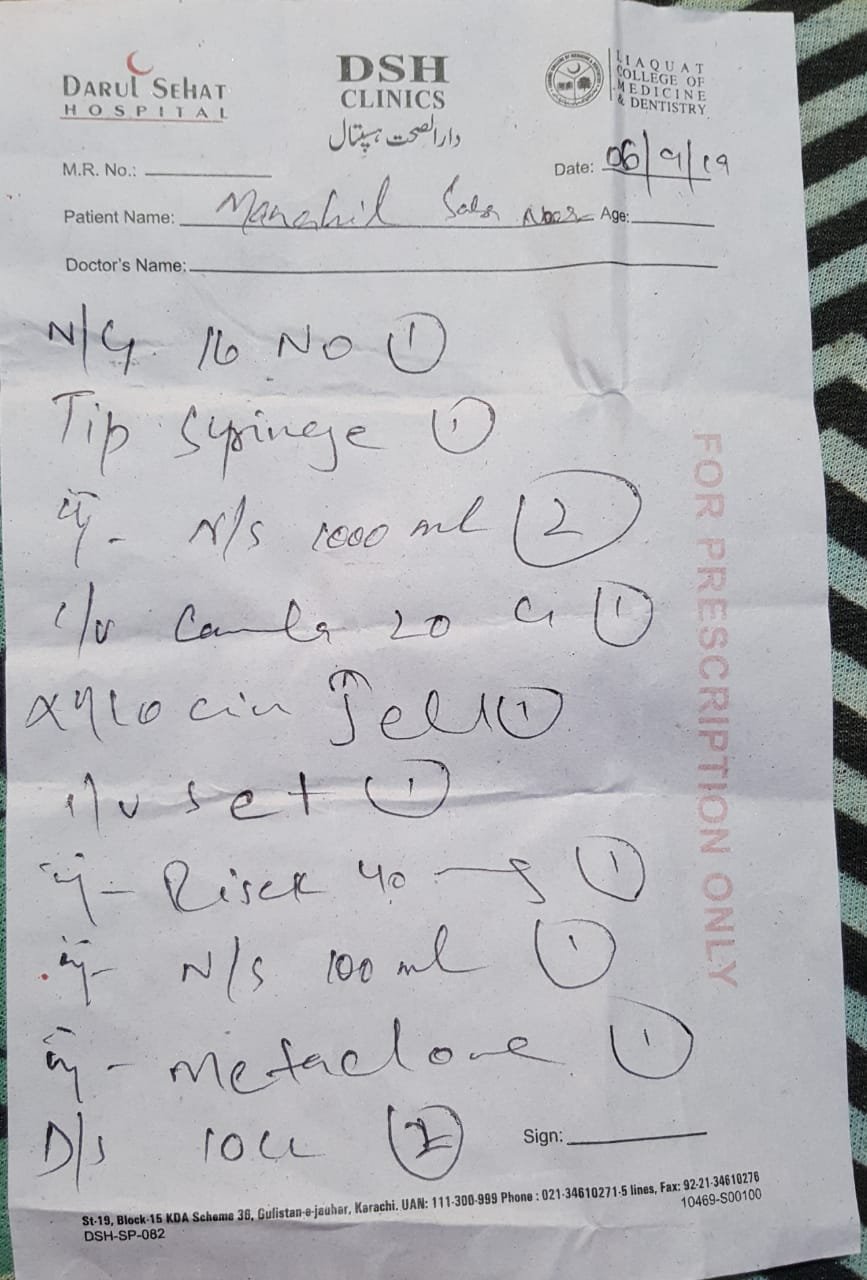 DARUL SEHAT
HOSPITAL
DSH
CLINICS
دارالصحت ہسپتال
LIAQUAT
COLLEGE OF
MEDICINE
& DENTISTRY
M.R. No.:
Date: 06/9/19
Patient Name: Manahil Age:
Doctor's Name:
N/G 16 No ①
Tip Syringe ①
Inj- N/S 1000 ml ②
I/V Canula 20 G ①
Xylocin Jell ①
I/V set ①
Inj- Risek 40 mg ①
Inj- N/S 100 ml ①
Inj- Metaclone ①
D/S 10cc ②
Sign:
FOR PRESCRIPTION ONLY
St-19, Block-15 KDA Scheme 36, Gulistan-e-jauhar, Karachi. UAN: 111-300-999 Phone : 021-34610271-5 lines, Fax: 92-21-34610276
DSH-SP-082 10469-S00100